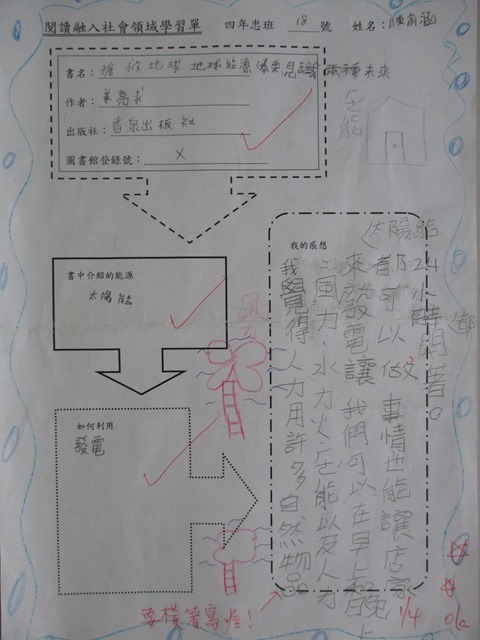 閱讀融入社會領域學習單 四年忠班 18 號 姓名：陳
書名：搶救地球 地球能源 見識兩種未來
作者：
出版社：香泉出版社
圖書館登錄號：X
全能
書中介紹的能源
太陽能
如何利用
發電
風
我的感想
太陽能24小時開著。
都可以做事情也能讓店家都
來發電讓我們可以在早上和晚
風力、水力火
我覺得人力用許多自然物品
要橫著寫喔！
1/4
ok